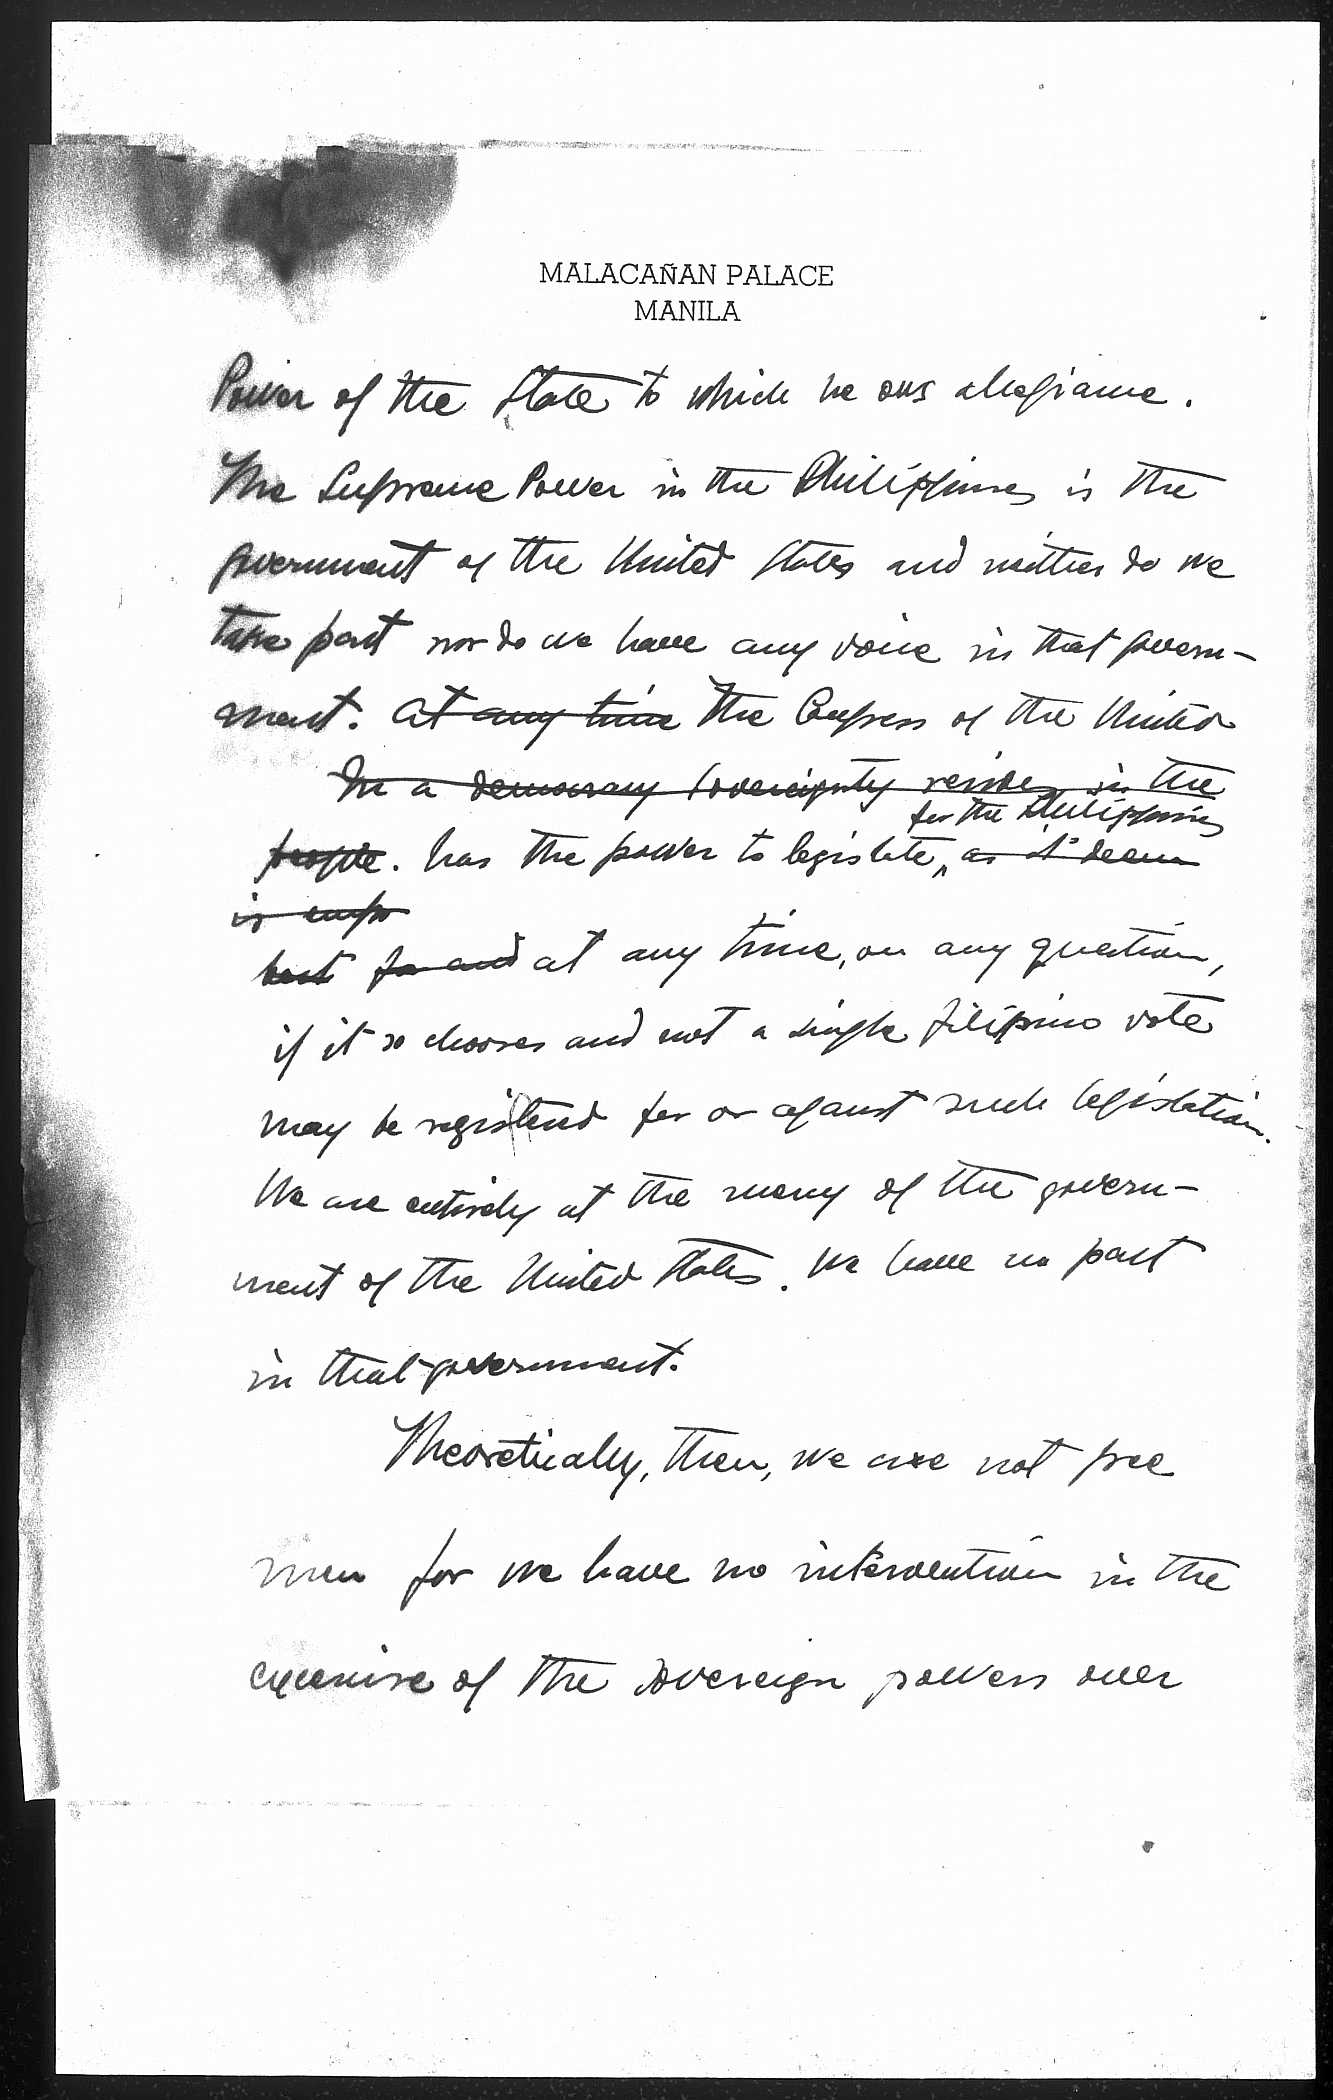 MALACAÑAN PALACE
MANILA
Power of the State to which we owe allegiance.
The Supreme Power in the Philippines is the
government of the United States and neither do we
take part nor do we have any voice in that govern-
ment. At any time The Congress of the United
In a democracy sovereignty resides in the
for the Philippines
people. has the power to legislate, as it deem
is
best for and at any time, on any question,
if it so chooses and not a single Filipino vote
may be registered for or against such legislation.
We are entirely at the mercy of the govern-
ment of the United States. We have no part
in that government.
Theoretically, then, we are not free
men for we have no intervention in the
exercise of the sovereign powers over